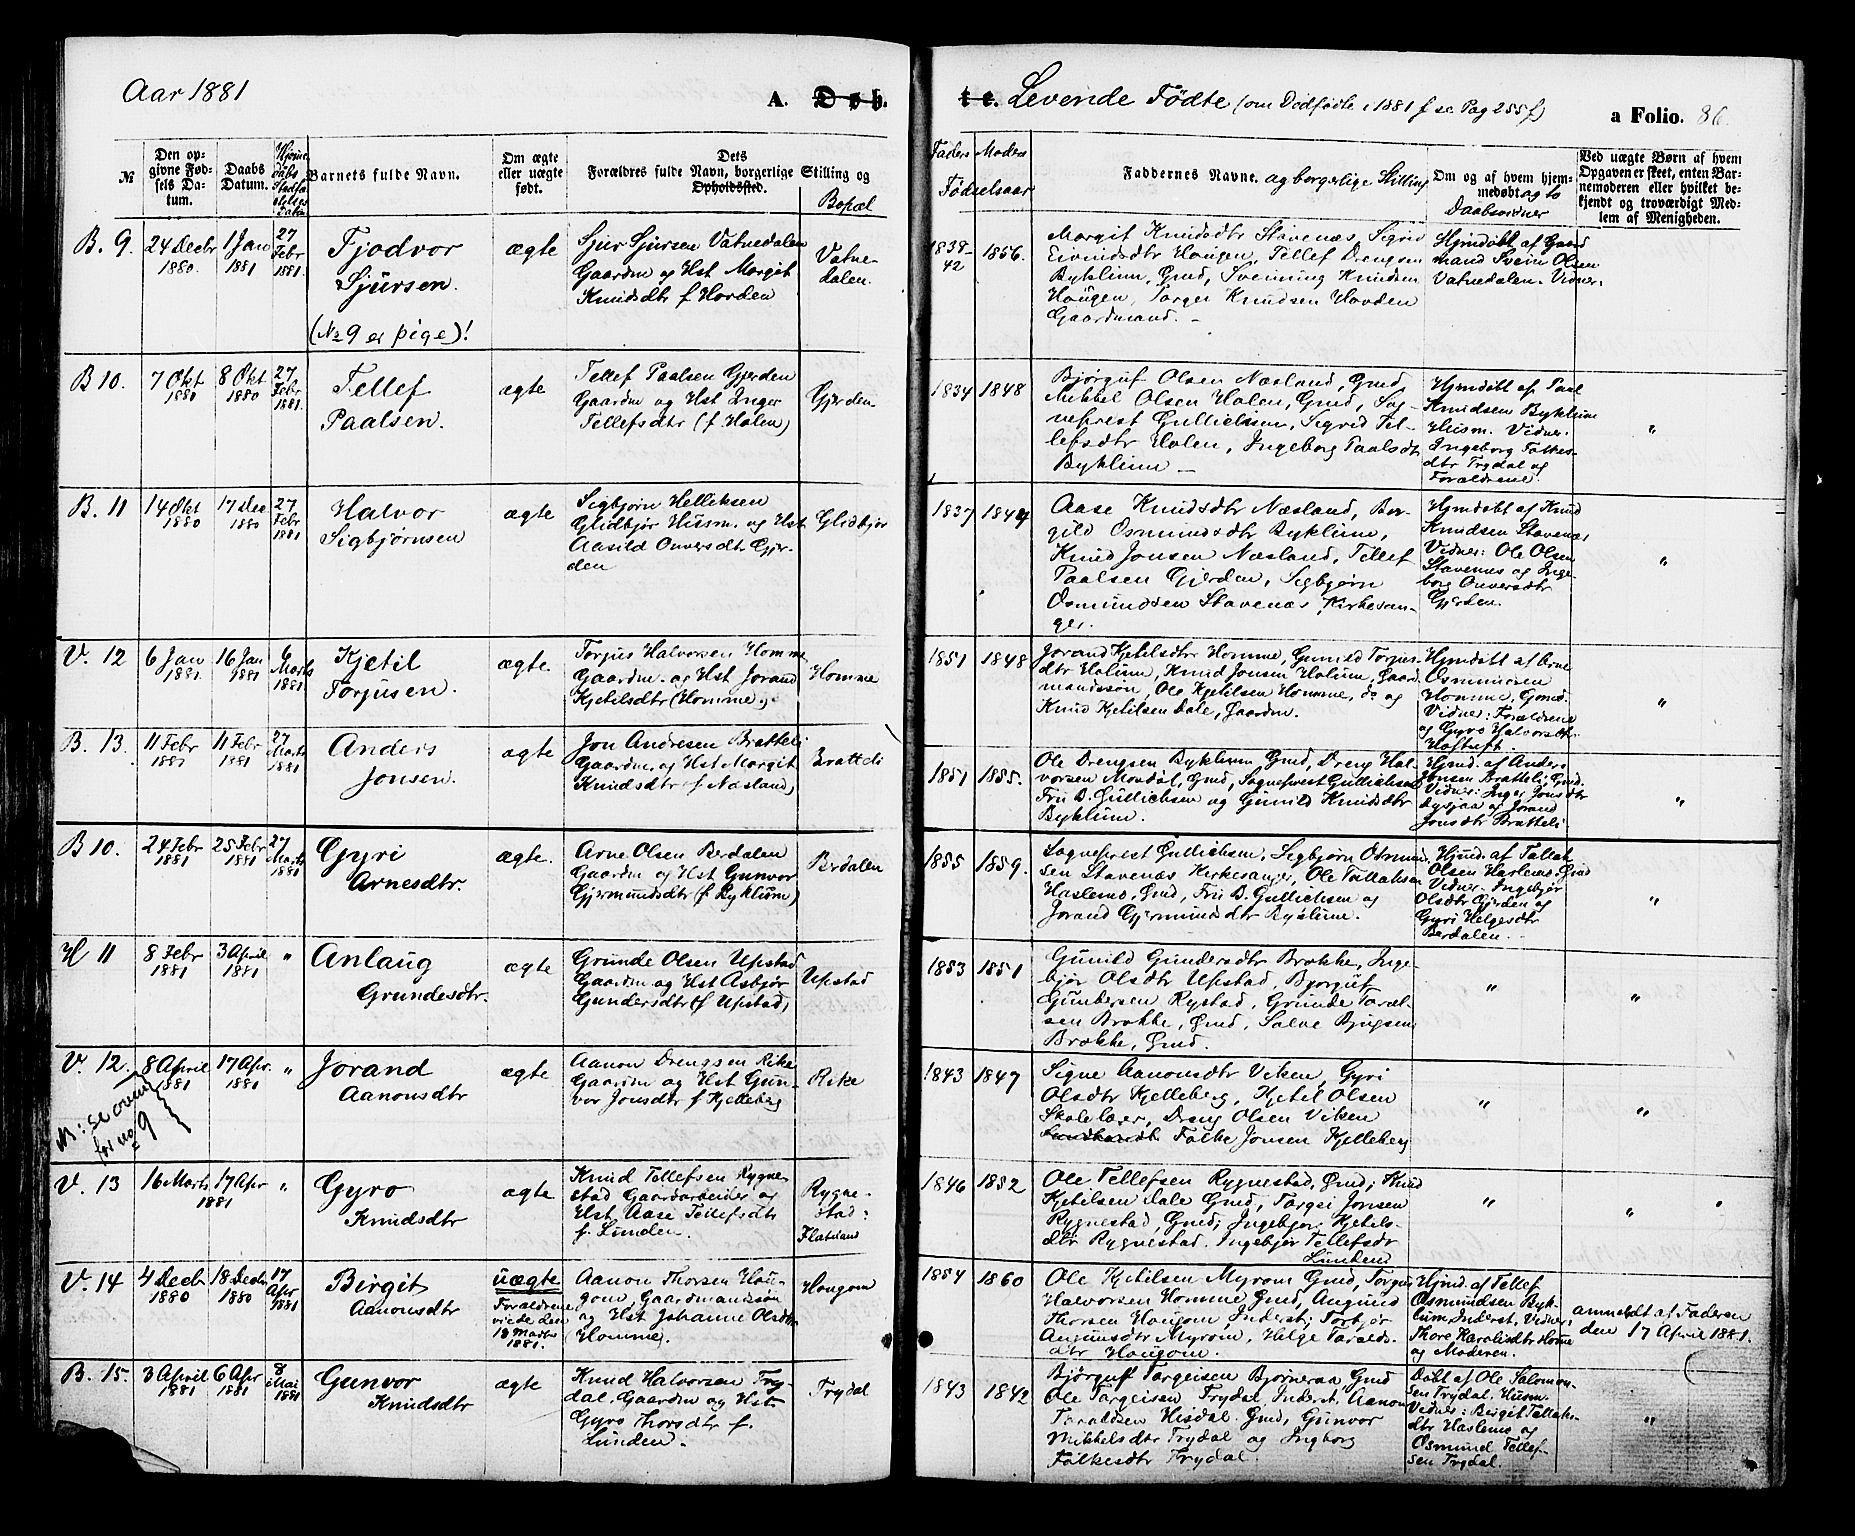 Aar 1881
A. D ø b.
t e. Levende Fødte (om Dødfødte i 1881 f se Pag 255 f)
a Folio. 86.
№
Den op-
givne Fød-
sels Da-
tum.
Daabs
Datum.
Barnets fulde Navn.
Om ægte
eller uægte
født.
Dets
Forældres fulde Navn, borgerlige Stilling og
Opholdssted.
Bopæl
Faders Moders
Fødselsaar
Faddernes Navne. og borgerlige Stilling
Om og af hvem hjem-
medøbt og to
Daabsvidner
Ved uægte Børn af hvem
Opgaven er skeet, enten Bar-
nemoderen eller hvilket be-
kjendt og troværdigt Med-
lem af Menigheden.
B. 9. 24 Decbr 1880. 1 Jan 1881 27 Febr 1881.
Tjodvor
Sjursen.
(No 9 er pige)!
ægte
Sjur Sjursen Vatnedalen
Gaardm og Hst Margit
Knudsdtr f Hovden
Vatne-
dalen.
1838-
42
1856.
Margit Knudsdtr Stavenæs, Sigrid
Eivindsdtr Hougen, Tellef Drengsen
Byklum, Gmd, Svenning Knudsen
Hougen, Targei Knudsen Hovden
Gaardmand. –
Hjmdøbt af Gaard
mand Svein Olsen
Vatnedalen. Vidner:
B 10. 7 Okt 1880 8 Okt 1880 27 Febr 1881.
Tellef
Paalsen.
ægte
Tellef Paalsen Gjerden
Gaardm og Hst Inger
Tellefsdtr (f. Holen)
Gjerden
1834 1848
Bjørguf Olsen Næsland, Gmd,
Mikkel Olsen Holen, Gmd, Sog-
neprest Gullichsen, Sigrid Tel-
lefsdtr Holen, Ingeborg Paalsdtr
Byklum –
Hjmdøbt af Paal
Knudsen Byklum
Husm. Vidner:
Ingeborg Folkes-
dtr Trydal og
Forældrene.
"
B. 11 14 Okt 1880 17 Dec 1880 27 Febr 1881
Halvor
Sigbjørnsen
ægte
Sigbjørn Helleksen
Glidbjør Husm. og Hst
Aasild Onversdtr Gjer-
den
Glidbjør
1837 1844
Aase Knudsdtr Næsland, Bor-
gild Osmundsdtr Byklum,
Knud Jonsen Næsland, Tellef
Paalsen Gjerden, Sigbjørn
Osmundsen Stavenæs, Kirkesan-
ger.
Hjmdøbt af Knud
Knudsen Stavenæs
Vidner: Ole Olsen
Stavenes og Inge-
borg Onversdtr
Gjerden.
"
V. 12 6 Jan 1881. 16 Jan 1881 6 Marts 1881.
Kjetil
Torjusen.
ægte.
Torjus Halvorsen Homme
Gaardm. og Hst Jorand
Kjetilsdtr (Homme)
Homme
1851 1848
Jorand Kjetilsdtr Homme, Gunild Torjus-
dtr Holum, Knud Jonsen Holum, Gaard
mandssøn, Ole Kjetilsen Homme, do og
Knud Kjetilsen Dale, Gaardm.
Hjmdøbt af Arne
Osmundsen
Homme, Gmd.
Vidner: Forældrene
og Gyro Halvorsdtr
"
B. 13. 11 Febr 1881 11 Febr 1881 27 Marts 1881
Anders
Jonsen.
ægte
Jon Andresen Bratteli
Gaardm. og Hst Margit
Knudsdtr f Næsland,
Bratteli
1851 1855.
Ole Drengsen Byklum Gmd, Dreng Hal-
vorsen Mosdøl, Gmd, Sogneprest Gullichsen
Fru B. Gullichsen og Gunild Knudsdtr
Byklum.
Hjmd. af Anders
Jonsen Bratteli, Gmd.
Vidner: Inger Jonsdtr
og Jorand
Jonsdtr Bratteli
"
B 10. 24 Febr 1881 25 Febr 1881 27 Marts 1881
Gyri
Arnesdtr.
ægte.
Arne Olsen Berdalen
Gaardm og Hst Gunvor
Gjermundsdtr (f Byklum)
Berdalen
1855 1859.
Sogneprest Gullichsen, Sigbjørn Osmund
sen Stavenæs Kirkesanger, Ole Tallaksen
Haslemo, Gmd, Fru B. Gullichsen og
Jorand Gjermundsdtr Byklum.
Hjmd. af Tallak
Olsen Haslemo Gmd
Vidner. Ingebjør
Olsdtr Gjerden og
Gyri Helgesdtr
Berdalen.
"
H 11 8 Febr 1881 3 April 1881 "
Anlaug
Grundesdtr.
ægte
Grunde Olsen Upstad
Gaardm og Hst Asbjør
Gundersdtr (f Upstad,
Upstad
1853 1851
Gunild Gundersdtr Brokke, Inge-
bjør Olsdtr Upstad, Bjorguf
Gunbersen Rystad, Grunde Taral-
sen Brokke, Gmd, Salve Bjugsen
Brokke, Gmd.
"
"
V. 12. 8 April 1881 17 Apr 1881 "
Jorand
Aanonsdtr
N: se oven
for no 9
ægte
Aanon Drengsen Rike
Gaardm og Hst Gun-
vor Jonsdtr f Kjelleberg
Rike
1843 1847
Signe Aanonsdtr Viken, Gyri
Olsdtr Kjelleberg, Kjetil Olsen
Skolelær, Dreng Olsen Viken
Folke Jonsen Kjelleberg
"
"
V. 13 16 Marts 17 Apr 1881 "
Gyro
Knudsdtr
ægte
Knud Tellefsen Rygne-
stad Gaardarbeider og
Hst Aase Tellefsdtr
f. Lunden.
Rygne-
stad:
Flateland
1846 1852
Ole Tellefsen Rygnestad, Gmd; Knud
Kjetilsen Dale Gmd, Targei Jonsen
Rygnestad, Gmd; Ingebjør Kjetils-
dtr Rygnestad. Ingebjør Tellefsdr
Lunden
"
"
V. 14 4 Decbr 1880 18 Decbr 1880 17 Apr 1881
Birgit
Aanonsdtr
uægte
Forældrene
viede den
18 Marts
1881.
Aanon Thorsen Hou-
gom, Gaardmandssøn
og Hst Johanne Olsdtr
Homme,
Hougom
1854 1860
Ole Kjetilsen Myrom Gmd, Torgus
Halvorsen Homme Gmd, Augund
Thorsen Hougom Inderst; Torbjør
Asmundsdtr Myrom, Helge Taralds-
dtr Hougom.
Hjmd. af Tellef
Osmundsen Byk-
lum, Inderst, Vidner:
Thore Haraldsdtr Homme
og Moderen.
anmeldt af Faderen
den 17 April 1881.
B. 15. 3 April 1881 6 Apr 1881 8 Mai 1881
Gunvor
Knudsdtr
ægte
Knud Halvorsen Try-
dal, Gaardm og Hst
Gyro Thorsdtr f.
Lunden.
Trydal
1843 1842
Bjørguf Targeisen Bjørneraa Gmd
Ole Targeisen Trydal, Inderst, Aanon
Taraldsen Hisdal. Gmd, Gunvor
Mikkelsdtr Trydal og Ingborg
Folkesdtr Trydal.
Døbt af Ole Salomon-
sen Trydal, Husm.
Vidner: Birgit Tallaks-
dtr Haslemo og
Osmund Tellef-
sen Trydal.
"